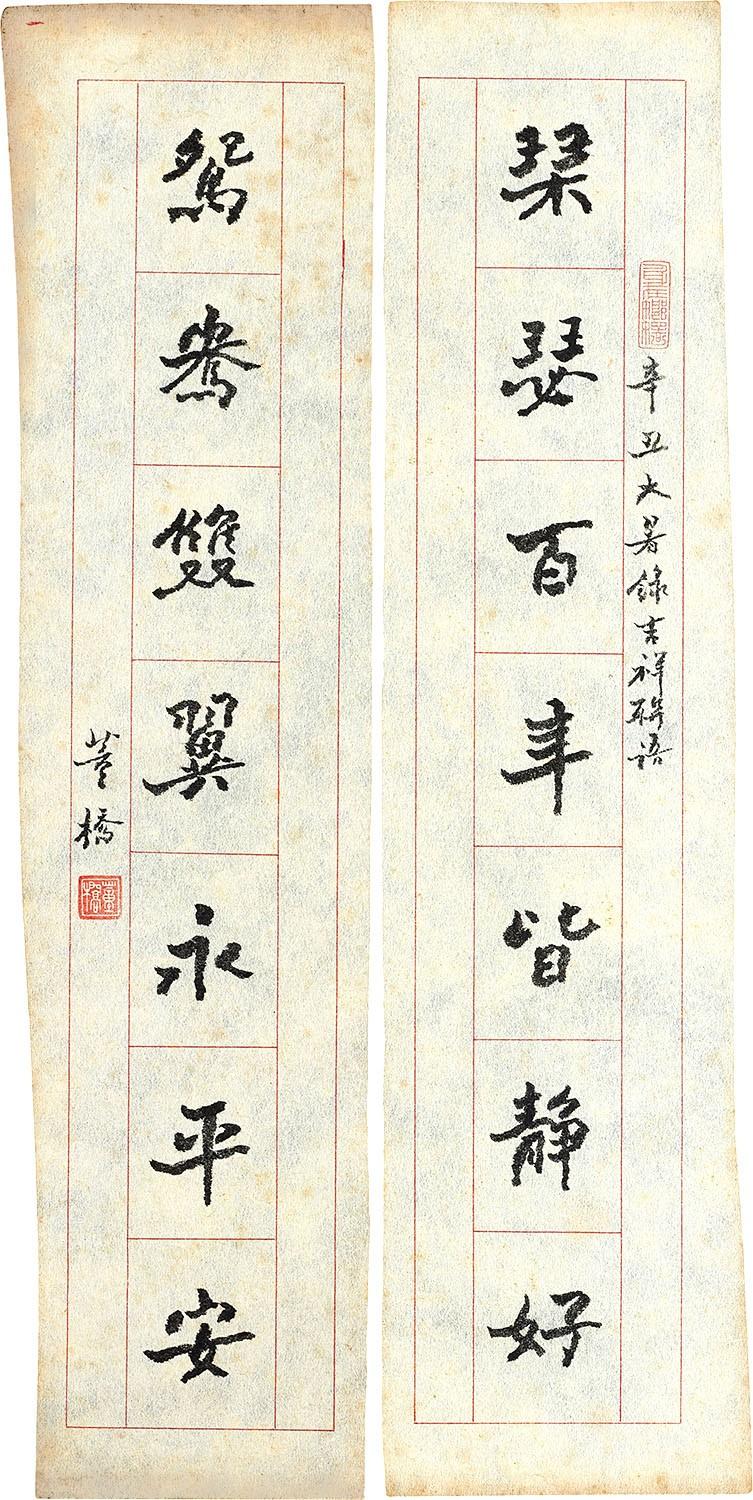 琴瑟百年皆靜好
辛丑大暑錄吉祥聯語
鴛鴦雙翼永平安
董橋
董橋